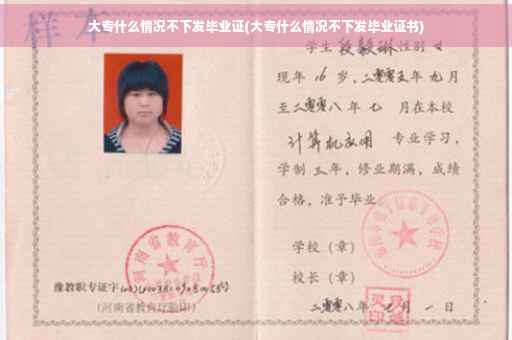 样本
大专什么情况不下发毕业证(大专什么情况不下发毕业证书)
学生 段毅琳 性别 女
现年 16 岁,二零零五年 九 月
至二零零八 年 七 月在本校
计算机应用 专业学习,
学制 三 年,修业期满,成绩
合格,准予毕业。
学校(章)
校长(章)
二零零八年 七 月 一 日
河南省教育厅
豫教职专证字
(河南省教育厅验印)